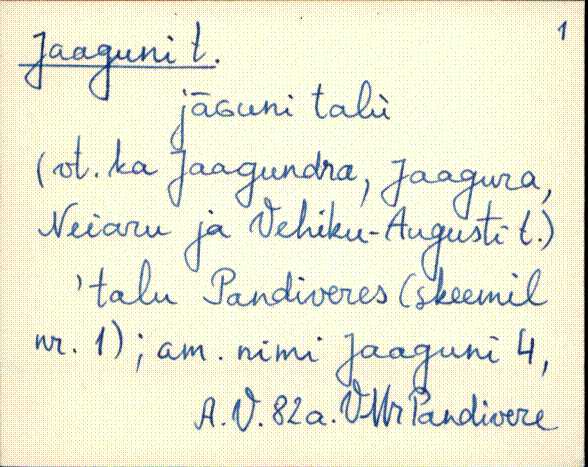 1
Jaaguni t.
jāGuni talù
(vt. ka Jaagundra, Jaagura,
Neiaru ja Vehiku-Augusti t.)
'talu Pandiveres (skeemil
nr. 1); am. nimi Jaaguni 4,
A.V. 82a. VMr Pandivere